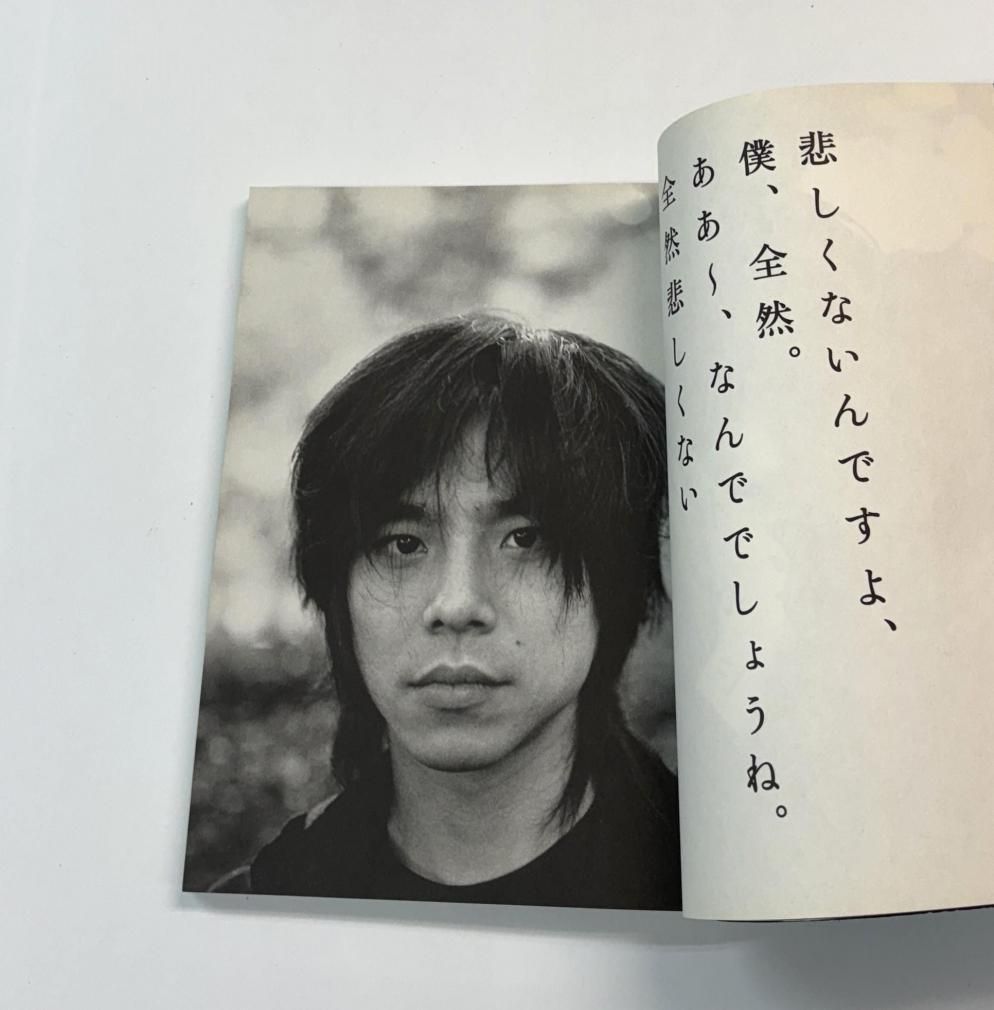 悲しくないんですよ、
僕、全然。
ああ〜、なんででしょうね。
全然悲しくない